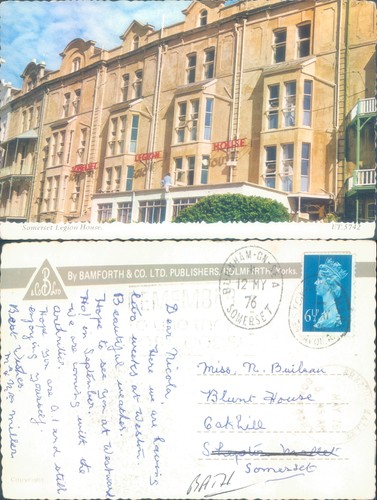 SOMERSET LEGION HOUSE
Somerset Legion House.
ET.5742
By BAMFORTH & CO. LTD. PUBLISHERS, HOLMFIRTH, Yorks.
BURNHAM-ON-SEA
12 MY
76
SOMERSET
6½P
Dear Nicola,
Here we are having
two weeks at Weston.
Beautiful weather.
Hope to see you at Westward
Ho! in September.
We are coming with the
Hope you are O.K. and still
enjoying yourself.
Best wishes
Miller
Miss, N.
Blunt House
Oakhill
Shepton Mallet
Somerset
BATH